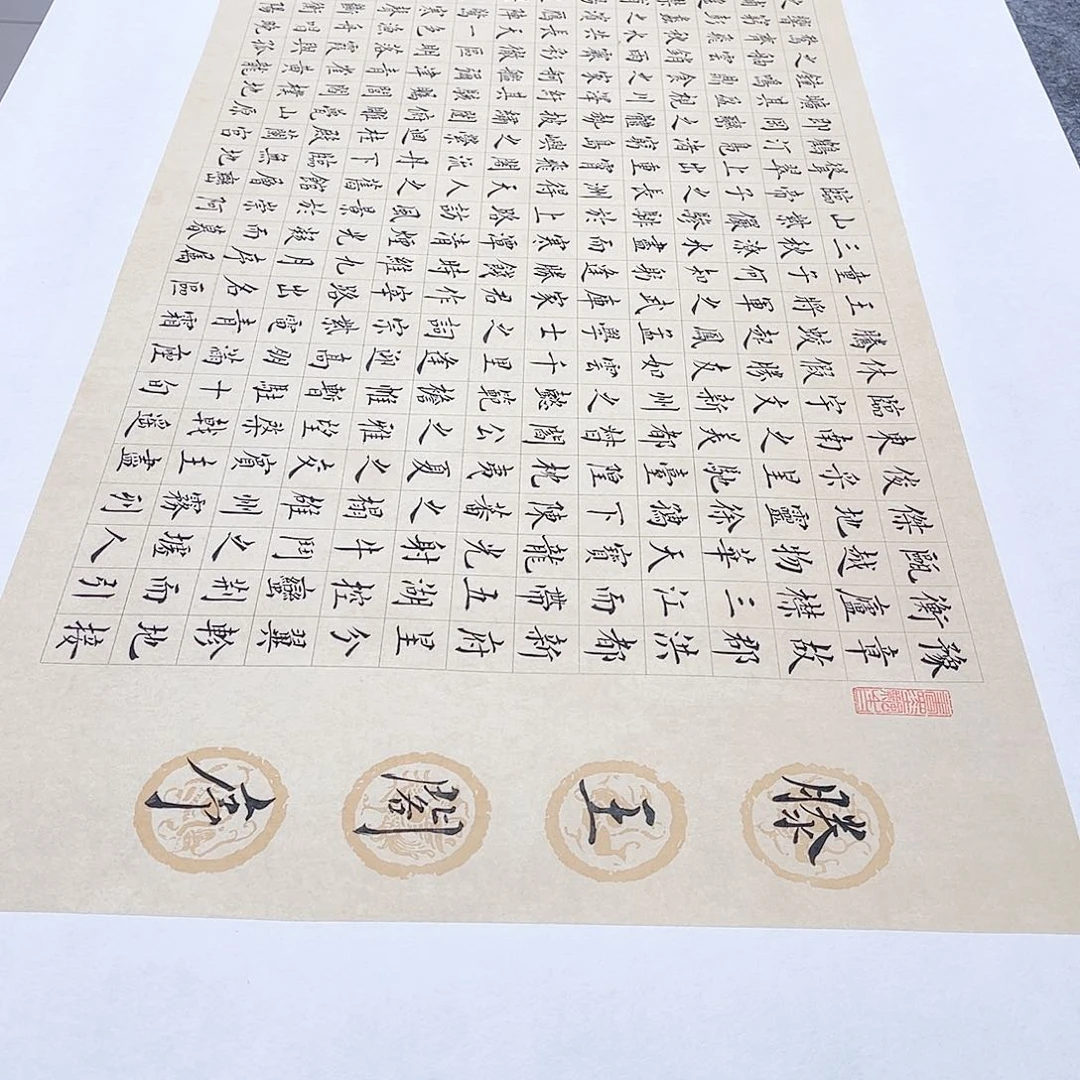 滕王閣序
豫章故郡洪都新府星分翼軫地接
衡廬襟三江而帶五湖控蠻荊而引
甌越物華天寶龍光射牛鬥之墟人
傑地靈徐孺下陳蕃之榻雄州霧列
俊采星馳臺隍枕夷夏之交賓主盡
東南之美都督閻公之雅望棨戟遙
臨宇文新州之懿範襜帷暫駐十旬
休假勝友如雲千里逢迎高朋滿座
騰蛟起鳳孟學士之詞宗紫電青霜
王將軍之武庫家君作宰路出名區
童子何知躬逢勝餞時維九月序屬
三秋潦水盡而寒潭清煙光凝而暮
山紫儼驂騑於上路訪風景於崇阿
臨帝子之長洲得天人之舊館層巒
聳翠上出重霄飛閣流丹下臨無地
鶴汀鳧渚窮島嶼之縈迴桂殿蘭宮
即岡巒之體勢披繡闥俯雕甍山原
曠其盈視川澤紆其駭矚閭閻撲地
鐘鳴鼎食之家舸艦彌津青雀黃龍
之舳雲銷雨霽彩徹區明落霞與孤
鶩齊飛秋水共長天一色漁舟唱晚
響窮彭蠡之濱雁陣驚寒聲斷衡陽